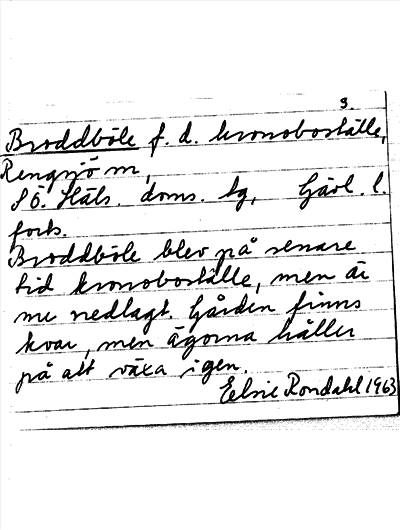 3.
Broddböle f. d. kronoboställe,
Rengsjö m,
Sö. Häls. doms. tg, Gävl. l.
forts.
Broddböle blev på senare
tid kronoboställe, men är
nu nedlagt. Gården finns
kvar, men ägorna håller
på att växa igen.
Elsie Rondahl 1963